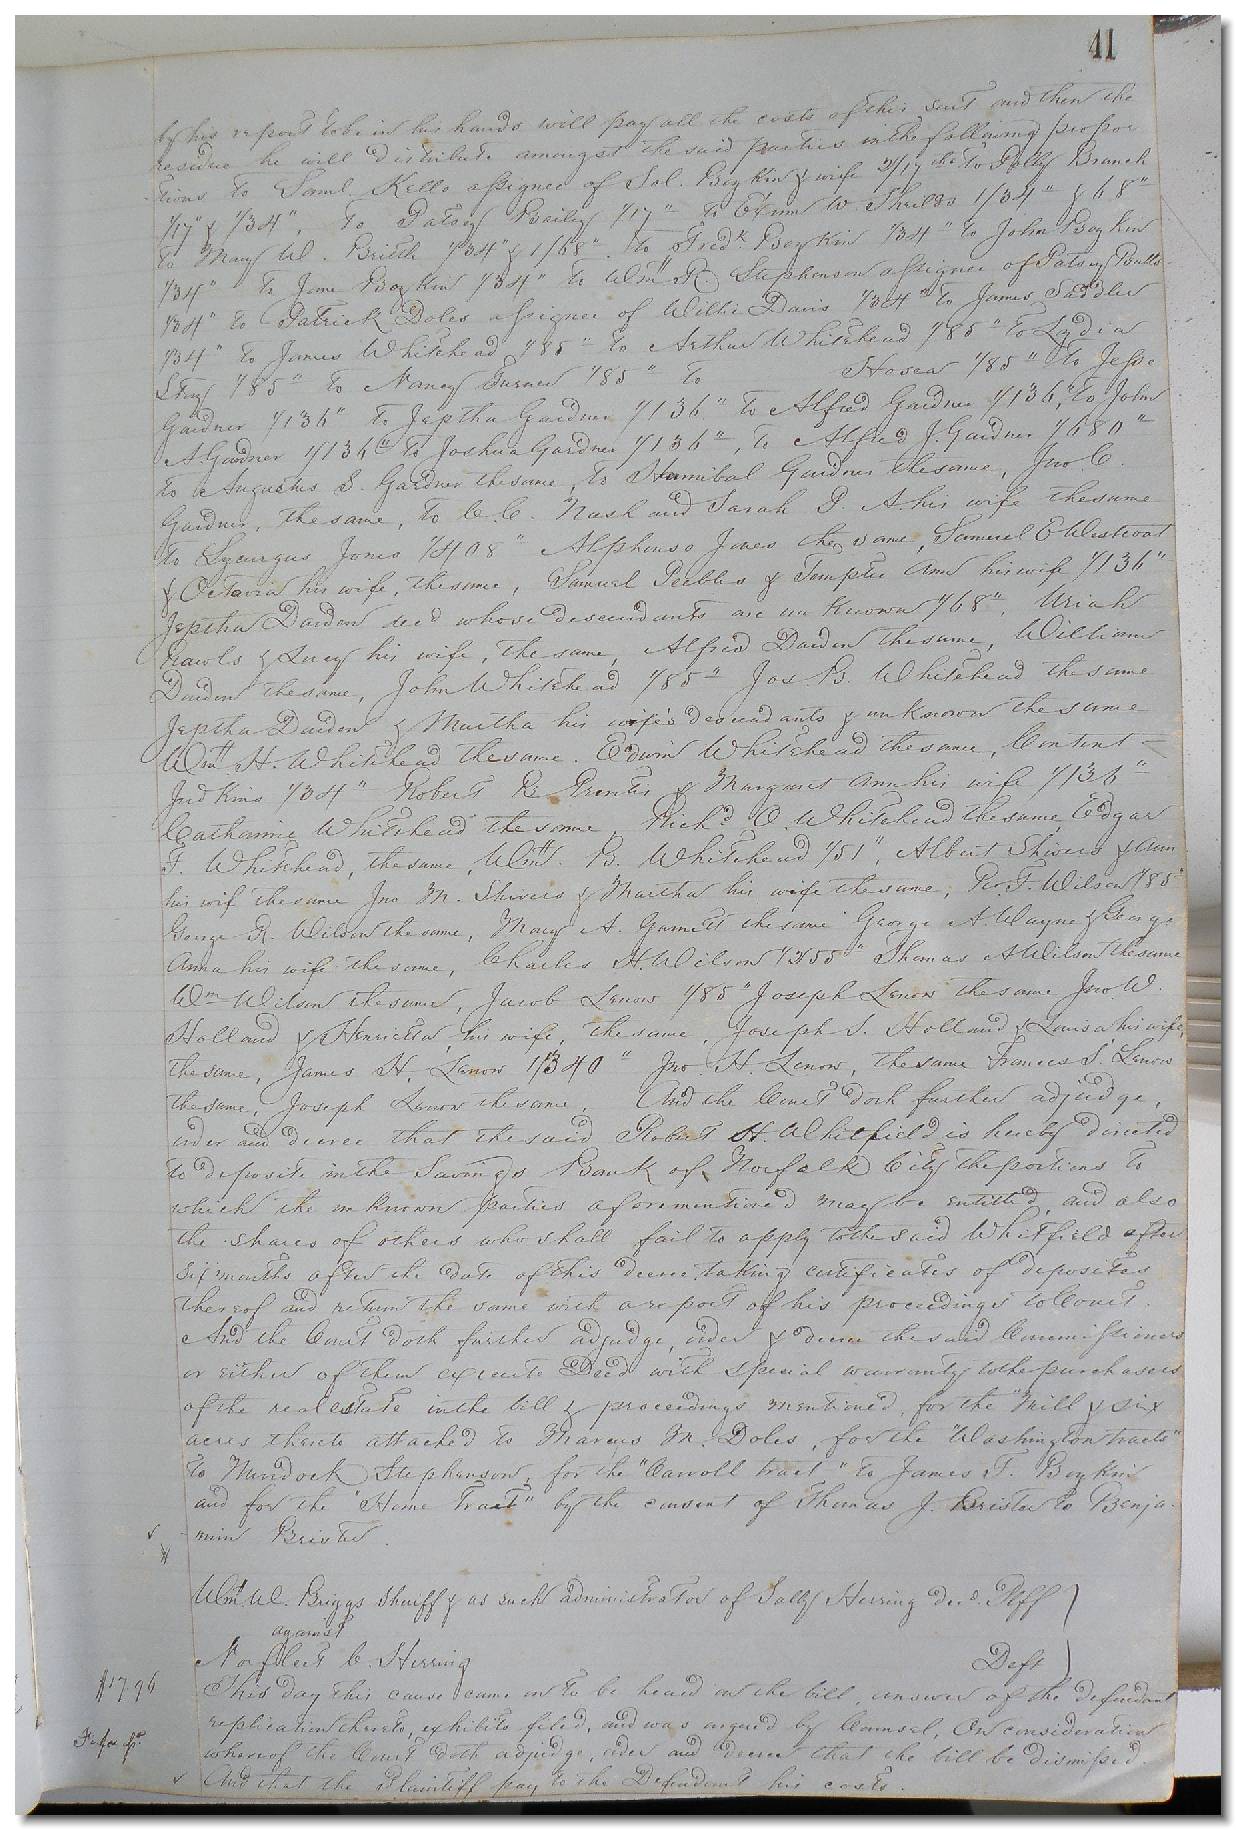 41
by his report to be in his hands will pay all the costs of this suit and then the
residue he will distribute amongst the said parties in the following propor
tions to Saml. Kello assignee of Sol. Boykin & wife 2/17ths to Polly Branch
1/17" & 1/34", To Patsey Bailey 1/17" to W. Shields 1/34" & 68"
to Mary W. Britt 1/34" & 1/68". to Fredk. Boykin 1/34" to John Boykin
1/34" to Jane Boykin 1/34" to Wm R. Stephenson assignee of Patsey Butts
1/34" to Patrick Doles assignee of Willie Davis 1/34" to James Saddler
1/34" to James Whitehead 1/85" to Arthur Whitehead 1/85" to Lydia
1/85" to Nancy Turner 1/85" to Hosea 1/85" to Jesse
Gardner 1/136" to Jeptha Gardner 1/136" to Alfred Gardner 1/136," to John
A. Gardner 1/136" to Joshua Gardner 1/136", to Alfred J. Gardner 1/680"
to Augustus S. Gardner the same, to Hannibal Gardner the same, Jno. C.
Gardner, the same, to C. C. Nash and Sarah P. A his wife the same
to Lycurgus Jones 1/408" Alphonso Jones the same, Samuel E Westroat
& Octavia his wife, the same, Samuel Peebles & Temptie Ann his wife 1/136"
Jeptha Darden decd whose descendants are unknown 1/68". Uriah
Rawls & Lucy his wife, the same, Alfred Darden the same, William
Darden the same, John Whitehead 1/85" Jos. B. Whitehead the same
Jeptha Darden & Martha his wife's descendants & unknown the same
Wm H. Whitehead the same. Edwin Whitehead the same, Content
Judkins 1/34" Robert & Margaret Ann his wife 1/136"
Catharine Whitehead the same, Richd O. Whitehead the same, Edgar
F. Whitehead, the same, Wm. B. Whitehead 1/51" Albert Shivers & Ann
his wif the same Jno M. Shivers & Martha his wife the same, F. Wilson 1/85"
George R. Wilson the same, Mary A. Garnett the same George A. Wayne & George
Anna his wife the same, Charles H. Wilson 1/255" Thomas A Wilson the same
Wm Wilson the same, Jacob Lenow 1/85" Joseph Lenow the same Jno. W.
Holland & Henrietta his wife, the same, Joseph S. Holland & Louisa his wife,
the same, James H. Lenow 1/340" Jno. H. Lenow, the same Frances S. Lenow
the same, Joseph Lenow the same. And the Court doth further adjudge,
order and decree that the said Robert H. Whitfield is hereby directed
to deposite in the Savings Bank of Norfolk City the portions to
which the unknown parties aforementioned may be entitled, and also
the shares of others who shall fail to apply to the said Whitfield after
six months after the date of this decree taking certificates of deposites
thereof and return the same with a report of his proceedings to Court.
And the Court doth further adjudge, order & decree the said Commissioners
or either of them execute Deed with special warranty to the purchasers
of the real estate in the bill & proceedings mentioned, for the "Mill & six
acres thereto attached to Marcus M. Doles, for the "Washington tracts"
to Murdock Stephenson, for the "Carroll tract" to James T. Boykin
and for the "Home Tract" by the consent of Thomas J. Brister to Benja-
min Brister.
Wm W. Briggs Sheriff & as such administrator of Sally Herring decd. Plff
against
Norfleet C. Herring Deft
$17.96
This day this cause came on to be heard on the bill, answer of the defendant
replication thereto, exhibits filed, and was argued by Counsel, On consideration
whereof the Court doth adjudge, order and decree that the bill be dismissed.
And that the Plaintiff pay to the Defendant his costs.